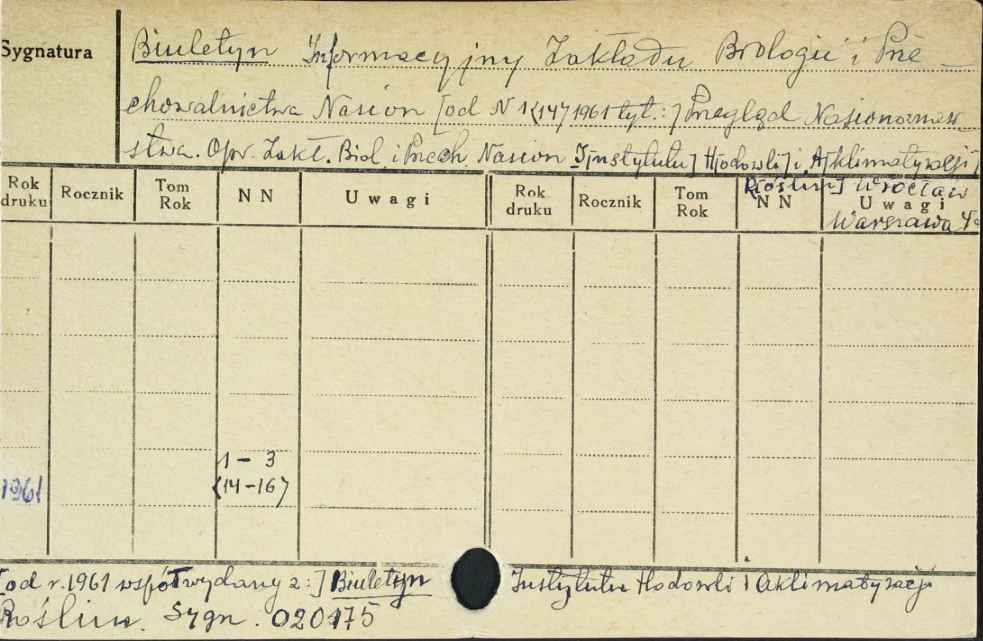 Sygnatura
Biuletyn Informacyjny Zakładu Biologii i Prze-
chowalnictwa Nasion [od N 1<14> 1961 tyt.:] Przegląd Nasionoznaw-
stwa. Opr. Zakł. Biol i Przech Nasion I[nstytutu] H[odowli] i A[klimatyzacji]
R[oślin] Wrocław
Warszawa
Rok druku Rocznik Tom Rok N N Uwagi Rok druku Rocznik Tom Rok N N Uwagi
1 – 3
1961 <14–16>
[od r. 1961 współwydany z:] Biuletyn Instytutu Hodowli i Aklimatyzacji
Roślin. Sygn. 020175